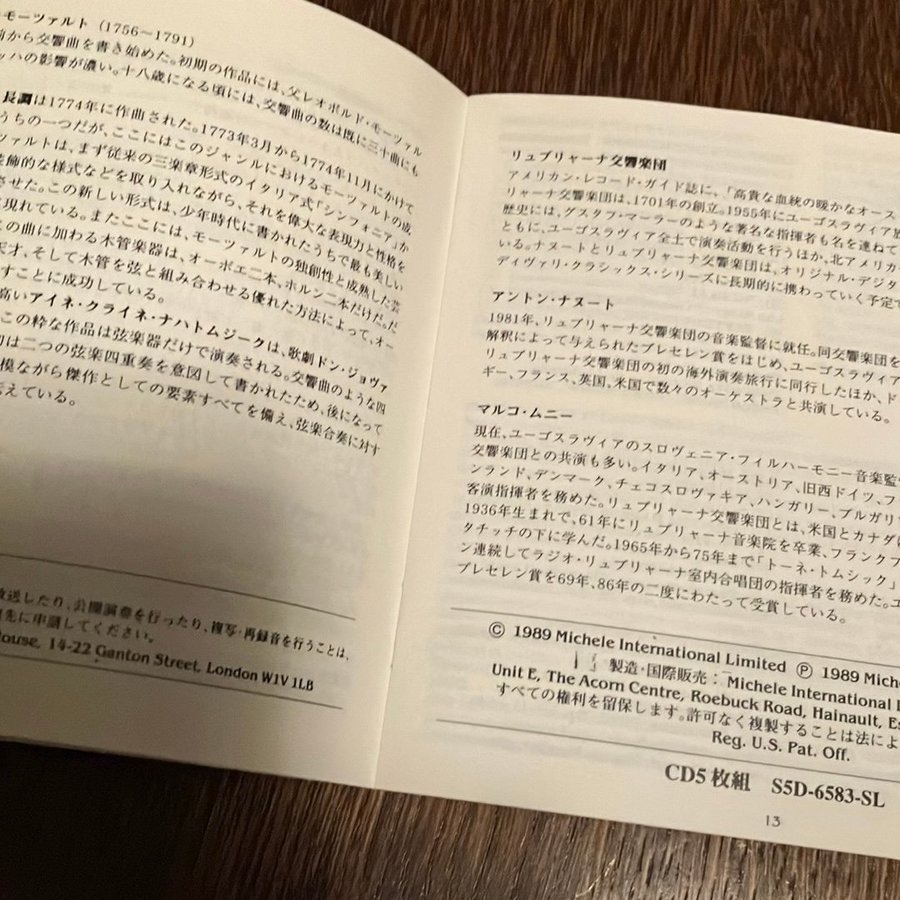 モーツァルト（1756〜1791）
前から交響曲を書き始めた。初期の作品には、父レオポルド・モーツァル
ッハの影響が濃い。十八歳になる頃には、交響曲の数は既に三十曲にも
長調は1774年に作曲された。1773年3月から1774年11月にかけて
うちの一つだが、ここにはこのジャンルにおけるモーツァルトの成
ツァルトは、まず従来の三楽章形式のイタリア式「シンフォニア」か
装飾的な様式などを取り入れながら、それを偉大な表現力と性格を
させた。この新しい形式は、少年時代に書かれたうちで最も美しい
に現れている。またここには、モーツァルトの独創性と成熟した芸
この曲に加わる木管楽器は、オーボエ二本、ホルン二本だけだ。だ
天才、そして木管を弦と組み合わせる優れた方法によって、オー
すことに成功している。
高いアイネ・クライネ・ナハトムジークは、歌劇ドン・ジョヴァ
この粋な作品は弦楽器だけで演奏される。交響曲のような四
初は二つの弦楽四重奏を意図して書かれたため、後になって
模ながら傑作としての要素すべてを備え、弦楽合奏に対す
伝えている。
放送したり、公開演奏を行ったり、複写・再録音を行うことは、
先に申請してください。
ouse, 14-22 Ganton Street, London W1V 1LB
リュブリャーナ交響楽団
アメリカン・レコード・ガイド誌に、「高貴な血統の暖かなオース
リャーナ交響楽団は、1701年の創立。1955年にユーゴスラヴィア放
歴史には、グスタフ・マーラーのような著名な指揮者も名を連ねて
ともに、ユーゴスラヴィア全土で演奏活動を行うほか、北アメリカ
いる。ナヌートとリュブリャーナ交響楽団は、オリジナル・デジタ
ディヴァリ・クラシックス・シリーズに長期的に携わっていく予定で
アントン・ナヌート
1981年、リュブリャーナ交響楽団の音楽監督に就任。同交響楽団を
解釈によって与えられたプレセレン賞をはじめ、ユーゴスラヴィア
リュブリャーナ交響楽団の初の海外演奏旅行に同行したほか、ド
ギー、フランス、英国、米国で数々のオーケストラと共演している。
マルコ・ムニー
現在、ユーゴスラヴィアのスロヴェニア・フィルハーモニー音楽監
交響楽団との共演も多い。イタリア、オーストリア、旧西ドイツ、フ
ンランド、デンマーク、チェコスロヴァキア、ハンガリー、ブルガリ
客演指揮者を務めた。リュブリャーナ交響楽団とは、米国とカナダに
1936年生まれで、61年にリュブリャーナ音楽院を卒業、フランクフ
タチッチの下に学んだ。1965年から75年まで「トーネ・トムシック」
ン連続してラジオ・リュブリャーナ室内合唱団の指揮者を務めた。
プレセレン賞を69年、86年の二度にわたって受賞している。
© 1989 Michele International Limited ℗ 1989 Mich
製造・国際販売： Michele International
Unit E, The Acorn Centre, Roebuck Road, Hainault, Es
すべての権利を留保します。許可なく複製することは法によ
Reg. U.S. Pat. Off.
CD5枚組 S5D-6583-SL
13